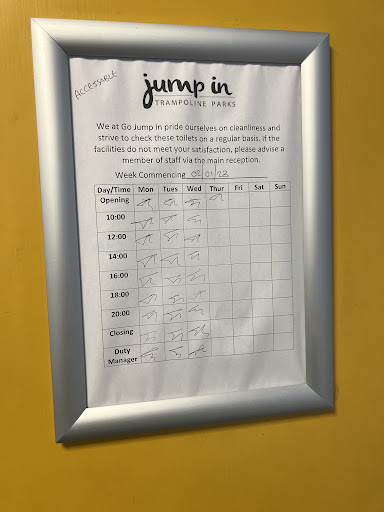 ACCESSIBLE
jump in
TRAMPOLINE PARKS
We at Go Jump In pride ourselves on cleanliness and
strive to check these toilets on a regular basis. If the
facilities do not meet your satisfaction, please advise a
member of staff via the main reception.
Week Commencing 02/01/23
Day/Time Mon Tues Wed Thur Fri Sat Sun
Opening
10:00
12:00
14:00
16:00
18:00
20:00
Closing
Duty
Manager